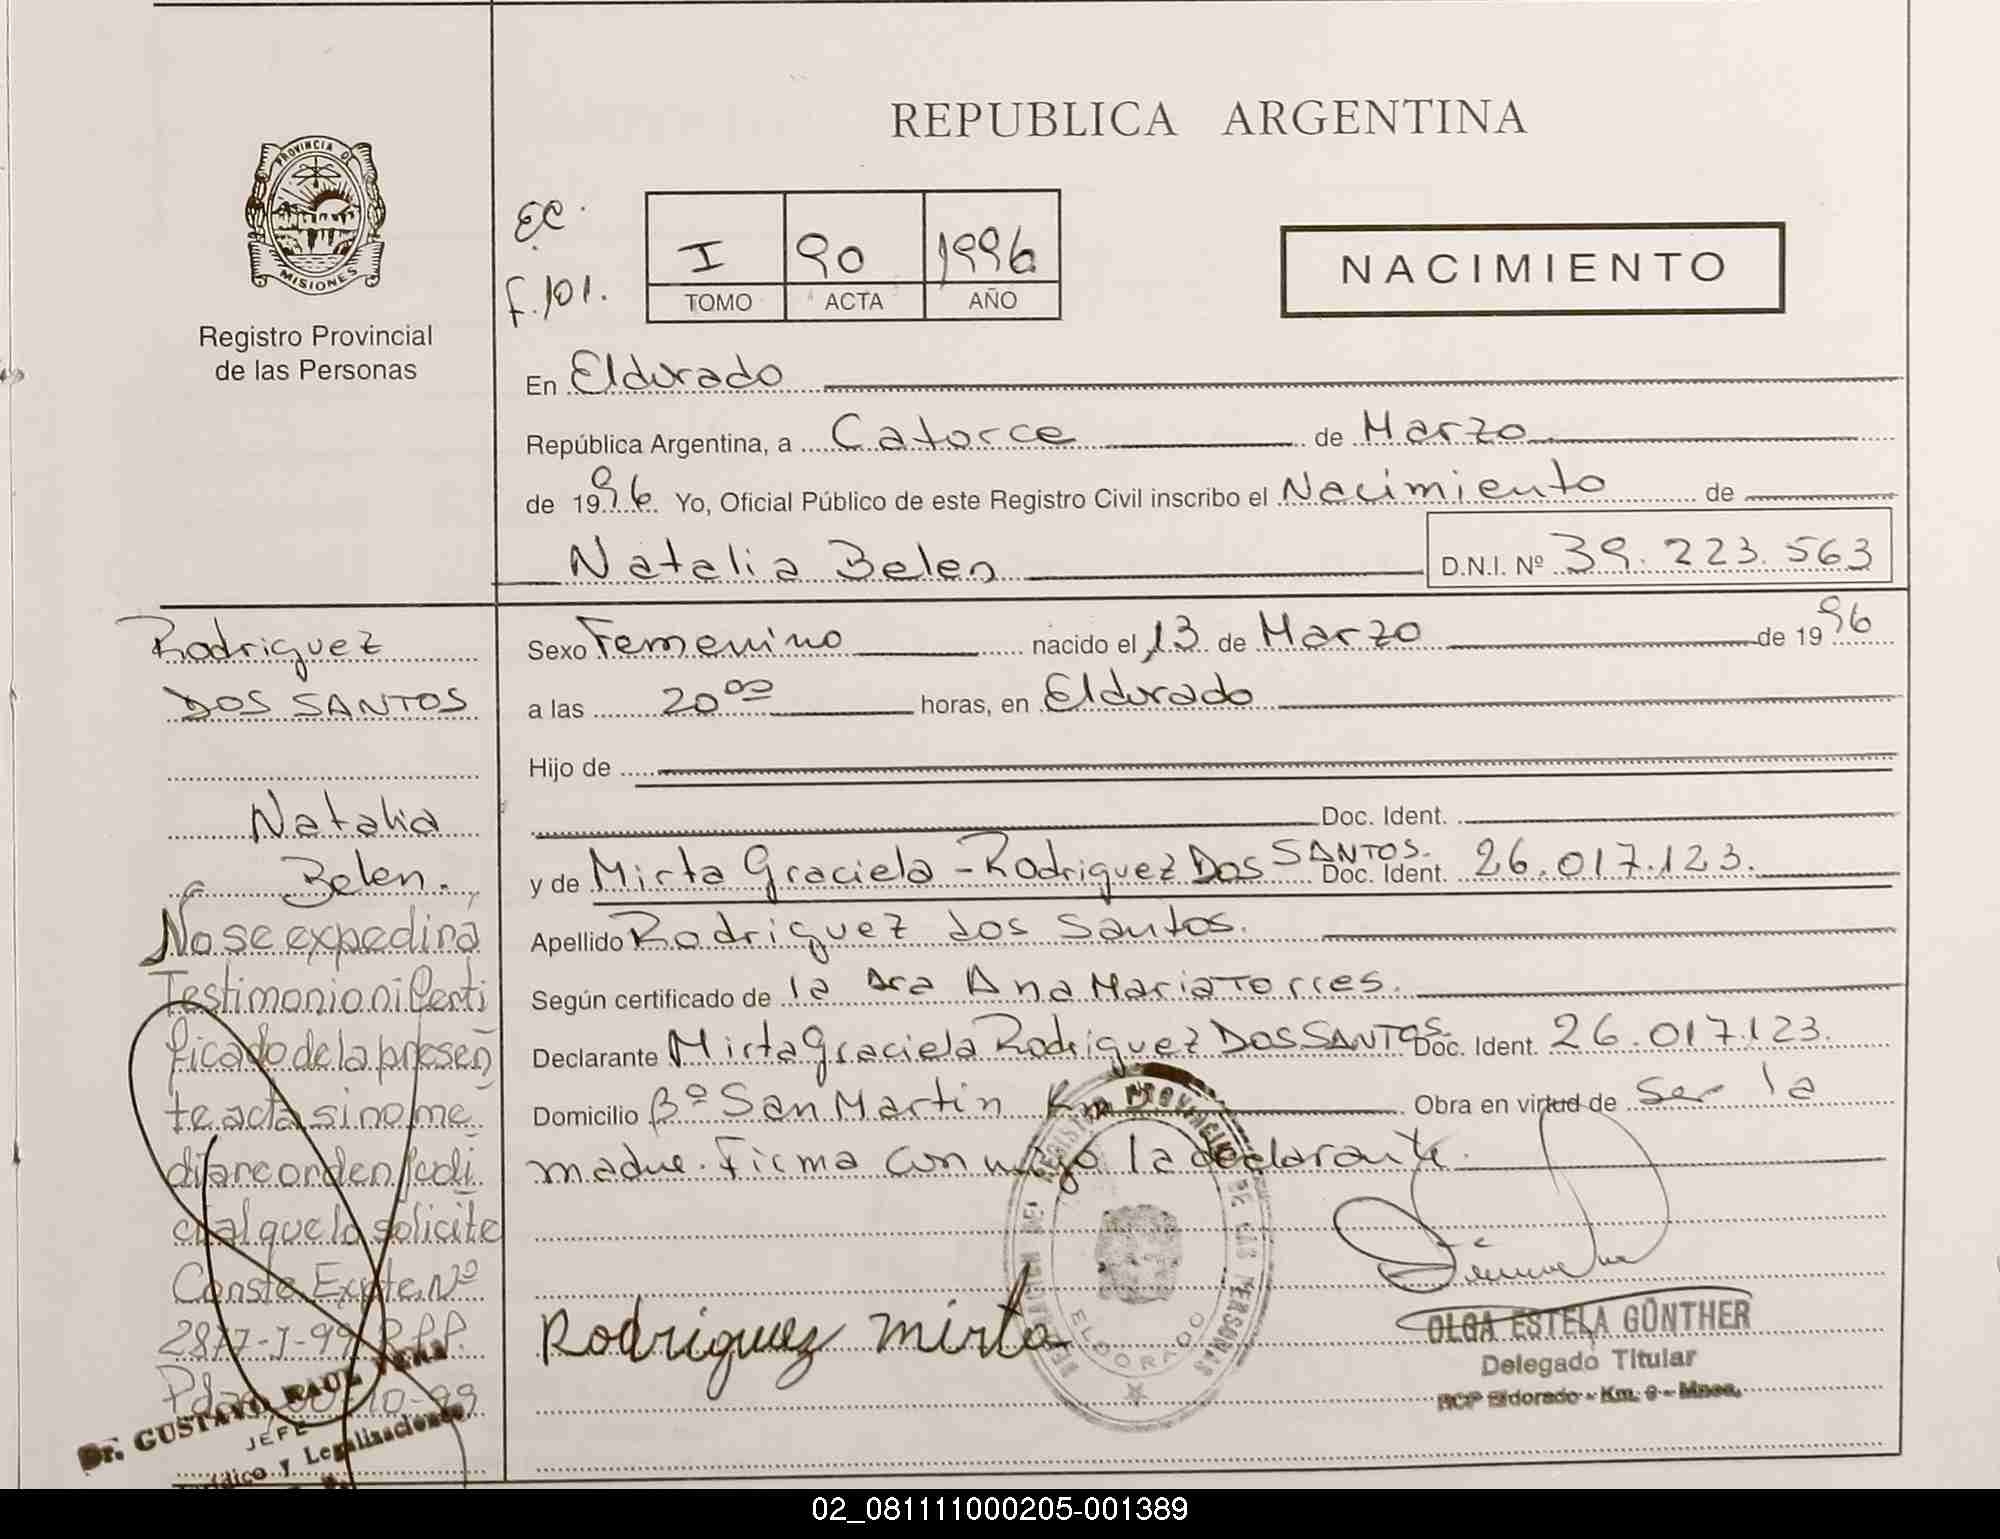 REPUBLICA ARGENTINA
PROVINCIA DE
MISIONES
Registro Provincial
de las Personas
EC.
F.101.
I 90 1996
TOMO ACTA AÑO
NACIMIENTO
En Eldorado
República Argentina, a Catorce de Marzo
de 1996 Yo, Oficial Público de este Registro Civil inscribo el Nacimiento de
Natalia Belen D.N.I. Nº 39.223.563
Rodriguez
DOS SANTOS
Natalia
Belen.
No se expedirá
Testimonio ni Certi
ficado de la presen
te acta si no me
diare orden Judi
cial que lo solicite
Conste. Expte. Nº
2877-J-99 R.P.P.
10-99
Dr. GUSTAVO RAUL
JEFE
y Legalizaciones
Sexo Femenino nacido el 13 de Marzo de 1996
a las 20 00 horas, en Eldorado
Hijo de
Doc. Ident.
y de Mirta Graciela - Rodriguez DOS SANTOS. Doc. Ident. 26.017.123.
Apellido Rodriguez dos Santos.
Según certificado de la Dra Ana Maria Torres.
Declarante Mirta Graciela Rodriguez DOS SANTOS. Doc. Ident. 26.017.123.
Domicilio Bº San Martin Km Obra en virtud de Ser la
madre. Firma con migo la declarante.
REGISTRO PROVINCIAL DE LAS PERSONAS
ELDORADO
Rodriguez Mirta
OLGA ESTELA GÜNTHER
Delegado Titular
RCP Eldorado - Km. 9 - Mnes.
02_081111000205-001389